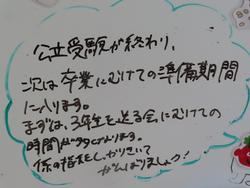 公立受験が終わり、
次は卒業にむけての準備期間
に入ります。
まずは、3年生を送る会にむけての
時間が多くなります。
係の指示をしっかりきいて
がんばりましょう!